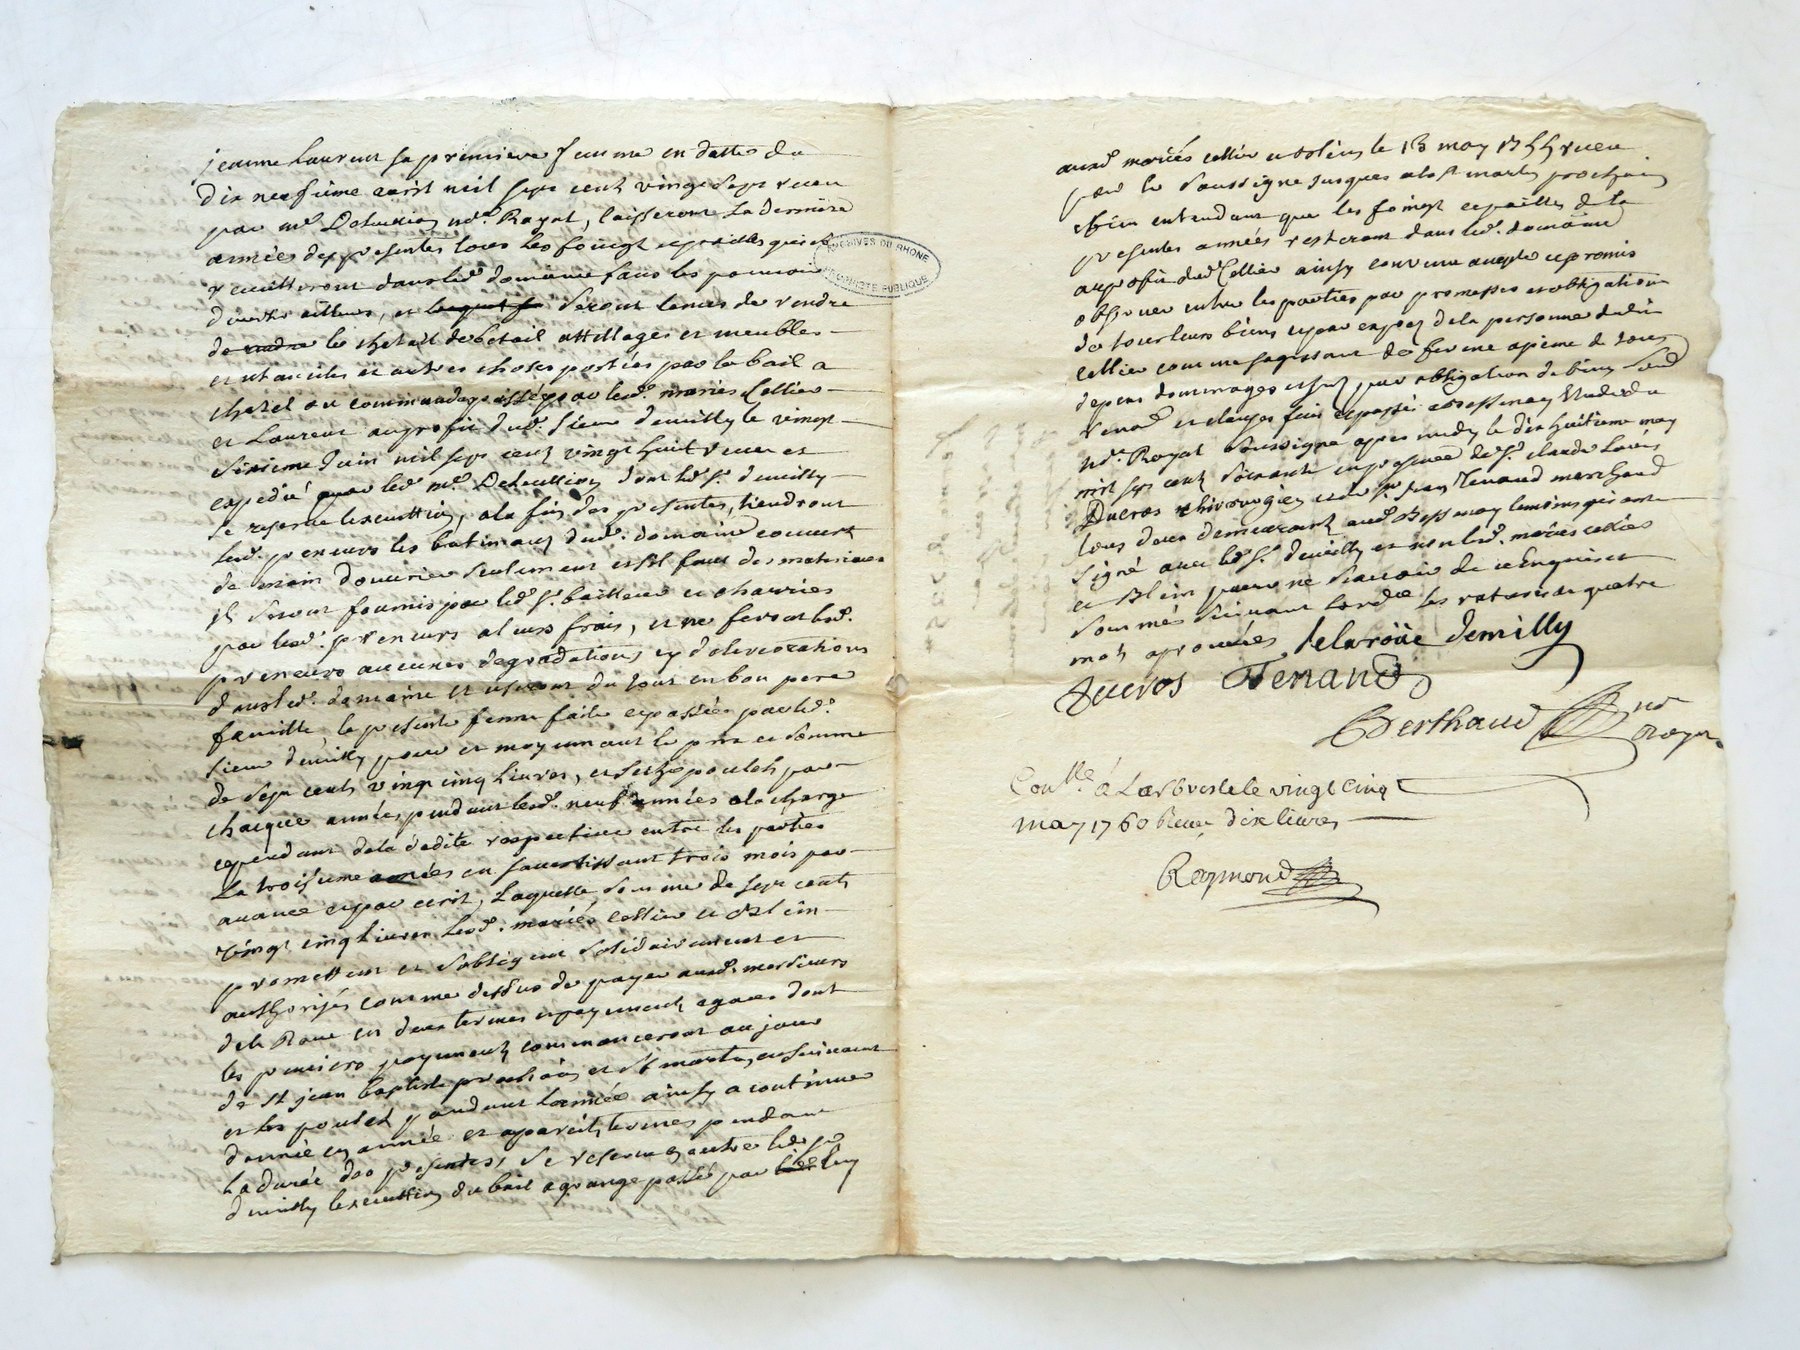 jeanne Laurent sa premiere femme en datte du
dix neufieme avril mil sept cent vingt sept receu
par me. Delaction nore. Royal, laisseront la derniere
années des presentes tous les foings et pailles qui se
ceuilliront dans led. domaine sans les pouvoir
ailleurs, et seront tenues de rendre
de rendre le chetail de betail attellages et meubles
et utancilles et autres choses portées par le bail a
chetel ou commande passé par led. mariés Collier
et Laurent au profit dud. sieur demilly le vingt
sixieme juin mil sept cent vingt huit receu et
expedié par led. me. Delaction dont led. sr. demilly
se reserve l'execution, a la fin des presentes, tiendront
led. preneurs les batimens dud. domaine couvert
de main d'ouvrier seulement et s'il faut des materiaux
ils seront fournis par led. sr. bailleur et charriés
par lesd. preneurs a leurs frais, et ne feront led.
preneurs aucunes degradations ny deteriorations
dans led. domaine et useront du tout en bon pere
famille, la presente ferme faite et passée par led.
sieur demilly pour et moyennant le prix et somme
de sept cents vingt cinq livres, et seize poulets par
chacque années pendant lesd. neuf années a la charge
cependant de la dedite respective entre les parties
la troisieme années en s'avertissant trois mois par
avance et par ecrit, Laquelle somme de sept cents
vingt cinq livres lesd. mariés Collier et Blein
promettent et s'obligent solidairement et
authorisés comme dessus de payer ausd. messieurs
de la Roue en deux termes et payements egaux dont
les premiers payements commanceront au jour
de St jean baptiste prochain et St martin ensuivant
et les poulets pendant l'année ainsy a continuer
d'année en année et a pareils termes pendant
la durée des presentes, se reserve en outre led. sr.
demilly l'execution du bail a grange passé par luy
ausd. mariés Collier et Blein le 13 may 1755 receu
par le soussigné jusques a la St martin prochain
bien entendu que les foings et pailles de la
presentes années resteront dans led. domaine
au profit dud. Collier ainsy convenu accepté et promis
observer entre les parties par promesses et obligations
de tous leurs biens et par exprez de la personne dudit
Collier comme s'agissant de ferme a peine de tous
depens dommages et par obligation de biens
renond. et clauses fait et passé a Bessenay Etude du
nore. Royal soussigné apres midy le dix huitieme may
mil sept cents soixante en presence de sr. claude Louis
Ducros chirurgien et de sr. jean Tenaud marchand
tous deux demeurants aud. Bessenay temoins qui ont
signé avec led. sr. demilly et non led. mariés Collier
et Blein pour ne sçavoir de ce Enquis et
sommés suivant l'ordce. les ratures de quatre
mots aprouvées delaroüe demilly
Ducros Tenand
Berthaud nore
Royal
Conlle. á Larbresle le vingt Cinq
may 1760 Receu dix livres
Raymond
ARCHIVES DU RHONE
PROPRIETE PUBLIQUE